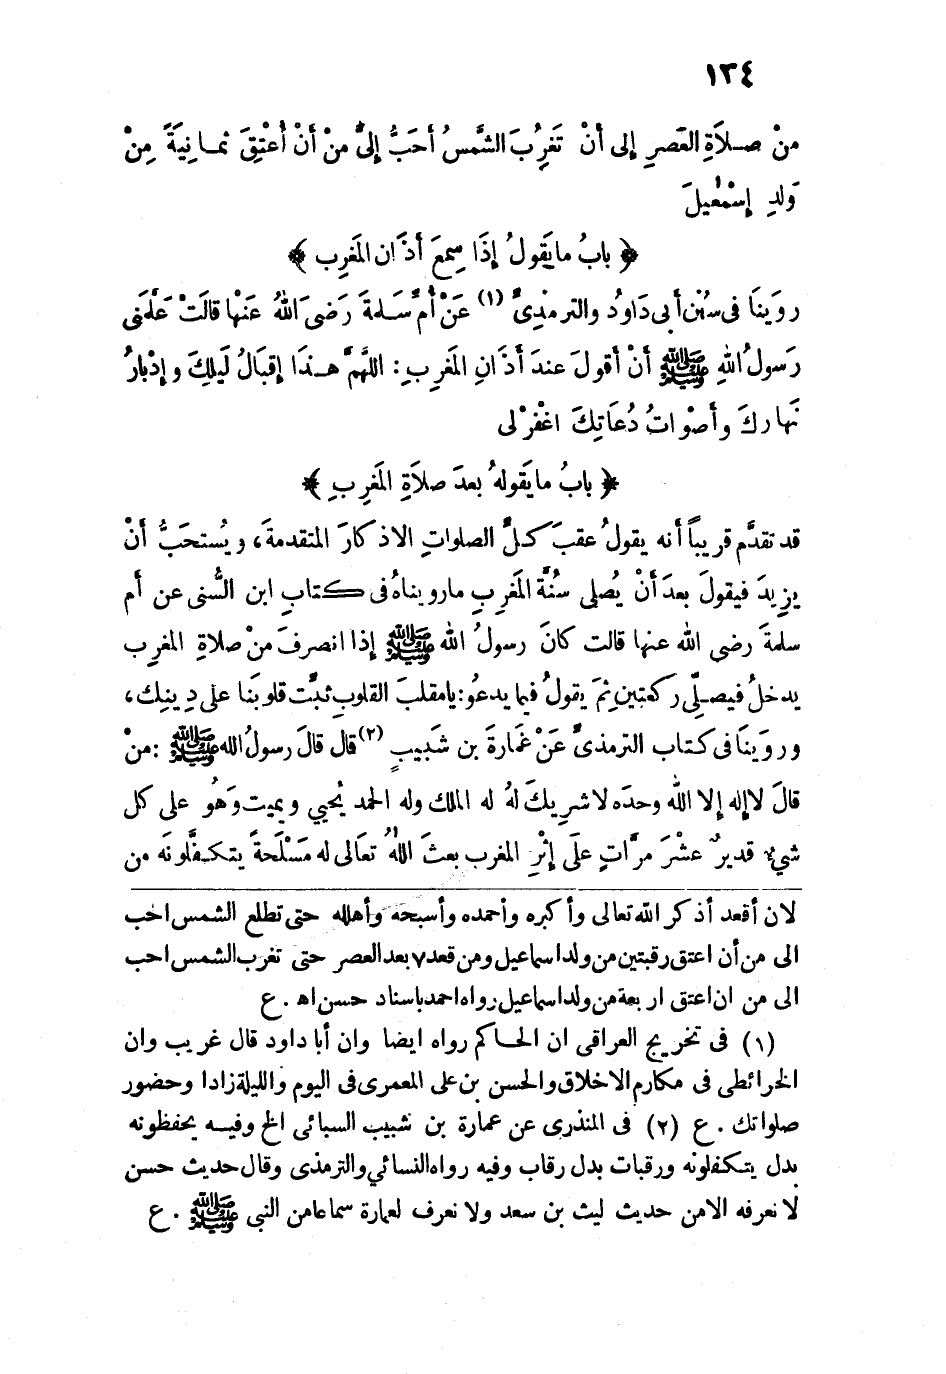 ١٣٤
منْ صلاَةِ العَصرِ إلى أنْ تَغرُبَ الشَّمسُ أحَبُّ إلىَّ منْ أنْ أُعتِقَ ثمانِيَةً مِنْ
وَلدِ إسْمٰعِيلَ
﴿ بابُ ما يَقولُ إذَا سِمعَ أذَانَ المَغرِب ﴾
روَينَا فى سُنَنِ أبى دَاودُ والترمذِىِّ (١) عَنْ أُمِّ سَلمةَ رَضىَ اللهُ عَنْها قالَتْ عَلَّمَنى
رَسولُ اللهِ ﷺ أنْ أقولَ عندَ أذَانِ المَغرِبِ : اللهُمَّ هـذَا إقبَالُ لَيلِكَ وإدْبارُ
نَهارِكَ وأصْواتُ دُعَاتِكَ اغْفرْ لى
﴿ بابُ ما يَقولهُ بعدَ صلاَةِ المَغرِبِ ﴾
قد تقدَّم قريباً أنه يقولُ عقبَ كلِّ الصلواتِ الاذكارَ المتقدمةَ، ويُستحَبُّ أنْ
يزِيدَ فيقولَ بعدَ أنْ يُصلى سُنَّةَ المَغربِ مارويناهُ فى كتابِ ابن السُّنى عن أم
سلمةَ رضى الله عنها قالت كانَ رسولُ الله ﷺ إذا انصرفَ منْ صلاةِ المغرب
يدخلُ فيصلِّى ركعتينِ ثمَ يقولُ فيما يدعُو: يامقلبَ القلوبِ ثبِّت قلوبَنا على دِينِك،
وروَينَا فى كتاب الترمذىِّ عَنْ عُمارةَ بن شَبيبٍ (٢) قال قالَ رسولُ الله ﷺ : منْ
قالَ لاإله إلا اللهُ وحدَه لاشرِيكَ لهُ له الملك وله الحمد يُحيي ويميت وَهُو على كل
شيءٍ قديرٌ عشْرَ مرَّاتٍ علَى إثْرِ المغرب بعثَ اللهُ تعَالى له مَسْلَحةً يتكفَّلونَه من
لان أقعد أذكر الله تعالى وأكبره وأحمده وأسبحه وأهلله حتى تطلع الشمس احب
الى من أن اعتق رقبتين من ولد اسماعيل ومن قعد ٧ بعد العصر حتى تغرب الشمس احب
الى من ان اعتق اربعة من ولد اسماعيل رواه احمد باسناد حسن اهـ . ع
(١) فى تخريج العراقى ان الحاكم رواه ايضا وان أبا داود قال غريب وان
الخرائطى فى مكارم الاخلاق والحسن بن على المعمرى فى اليوم والليلة زادا وحضور
صلواتك . ع (٢) فى المنذرى عن عمارة بن شبيب السبائى الخ وفيه يحفظونه
بدل يتكفلونه ورقبات بدل رقاب وفيه رواه النسائي والترمذى وقال حديث حسن
لا نعرفه الا من حديث ليث بن سعد ولا نعرف لعمارة سماعا من النبى ﷺ . ع